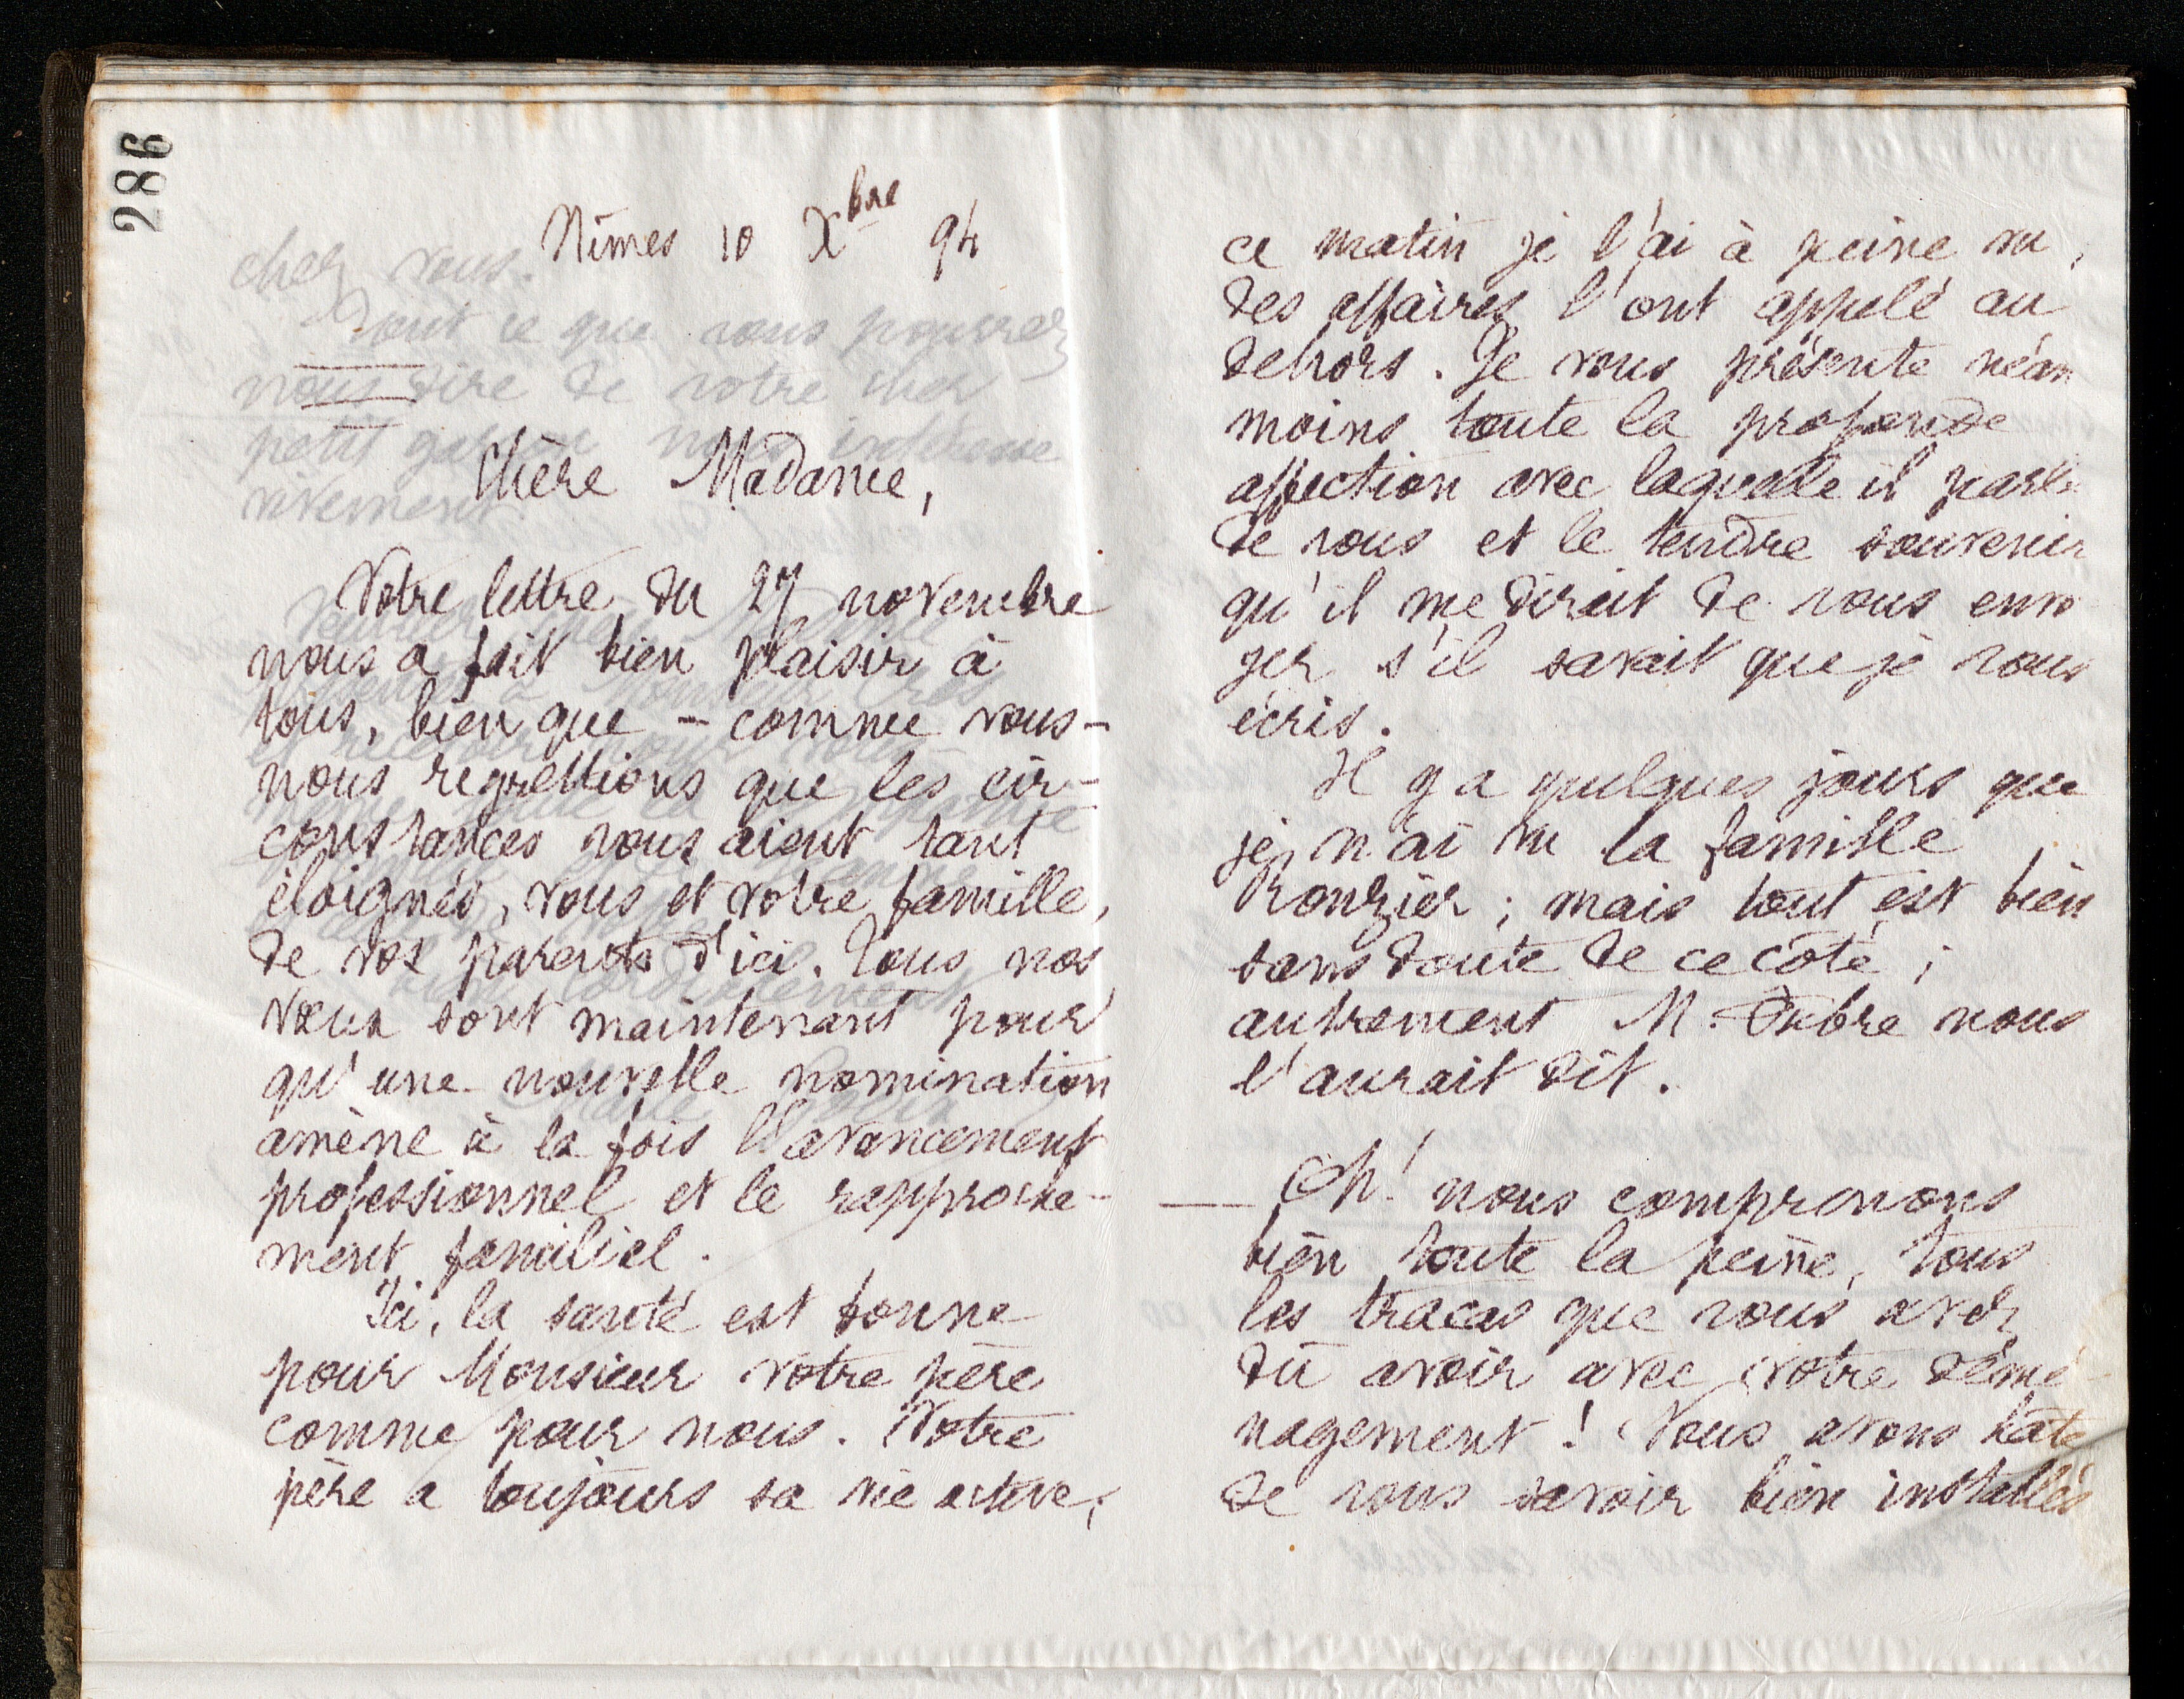 286
Nîmes 10 Xbre 94
Chère Madame,
Votre lettre du 27 novembre
nous a fait bien plaisir à
tous, bien que – comme vous –
nous regrettions que les cir-
constances vous aient tant
éloignés, vous et votre famille,
de vos parents d'ici. Tous nos
vœux sont maintenant pour
qu'une nouvelle nomination
amène à la fois l'avancement
professionnel et le rapproche-
ment familial.
Ici, la santé est bonne
pour Monsieur votre père
comme pour nous. Votre
père a toujours sa vie active;
ce matin je l'ai à peine vu,
des affaires l'ont appelé au
dehors. Je vous présente néan
moins toute la profonde
affection avec laquelle il parle
de vous et le tendre souvenir
qu'il me dirait de vous envo
yer s'il savait que je vous
écris.
Il y a quelques jours que
je n'ai vu la famille
Rouzier; mais tout est bien
sans doute de ce côté;
autrement M. nous
l'aurait dit.
— Oh! nous comprenons
bien toute la peine, tous
les tracas que vous avez
dû avoir avec votre démé
nagement! Nous avons hâte
de vous savoir bien installés
chez vous.
Tout ce que vous pourrez
nous dire de votre cher
petit garçon nous intéresse
vivement.